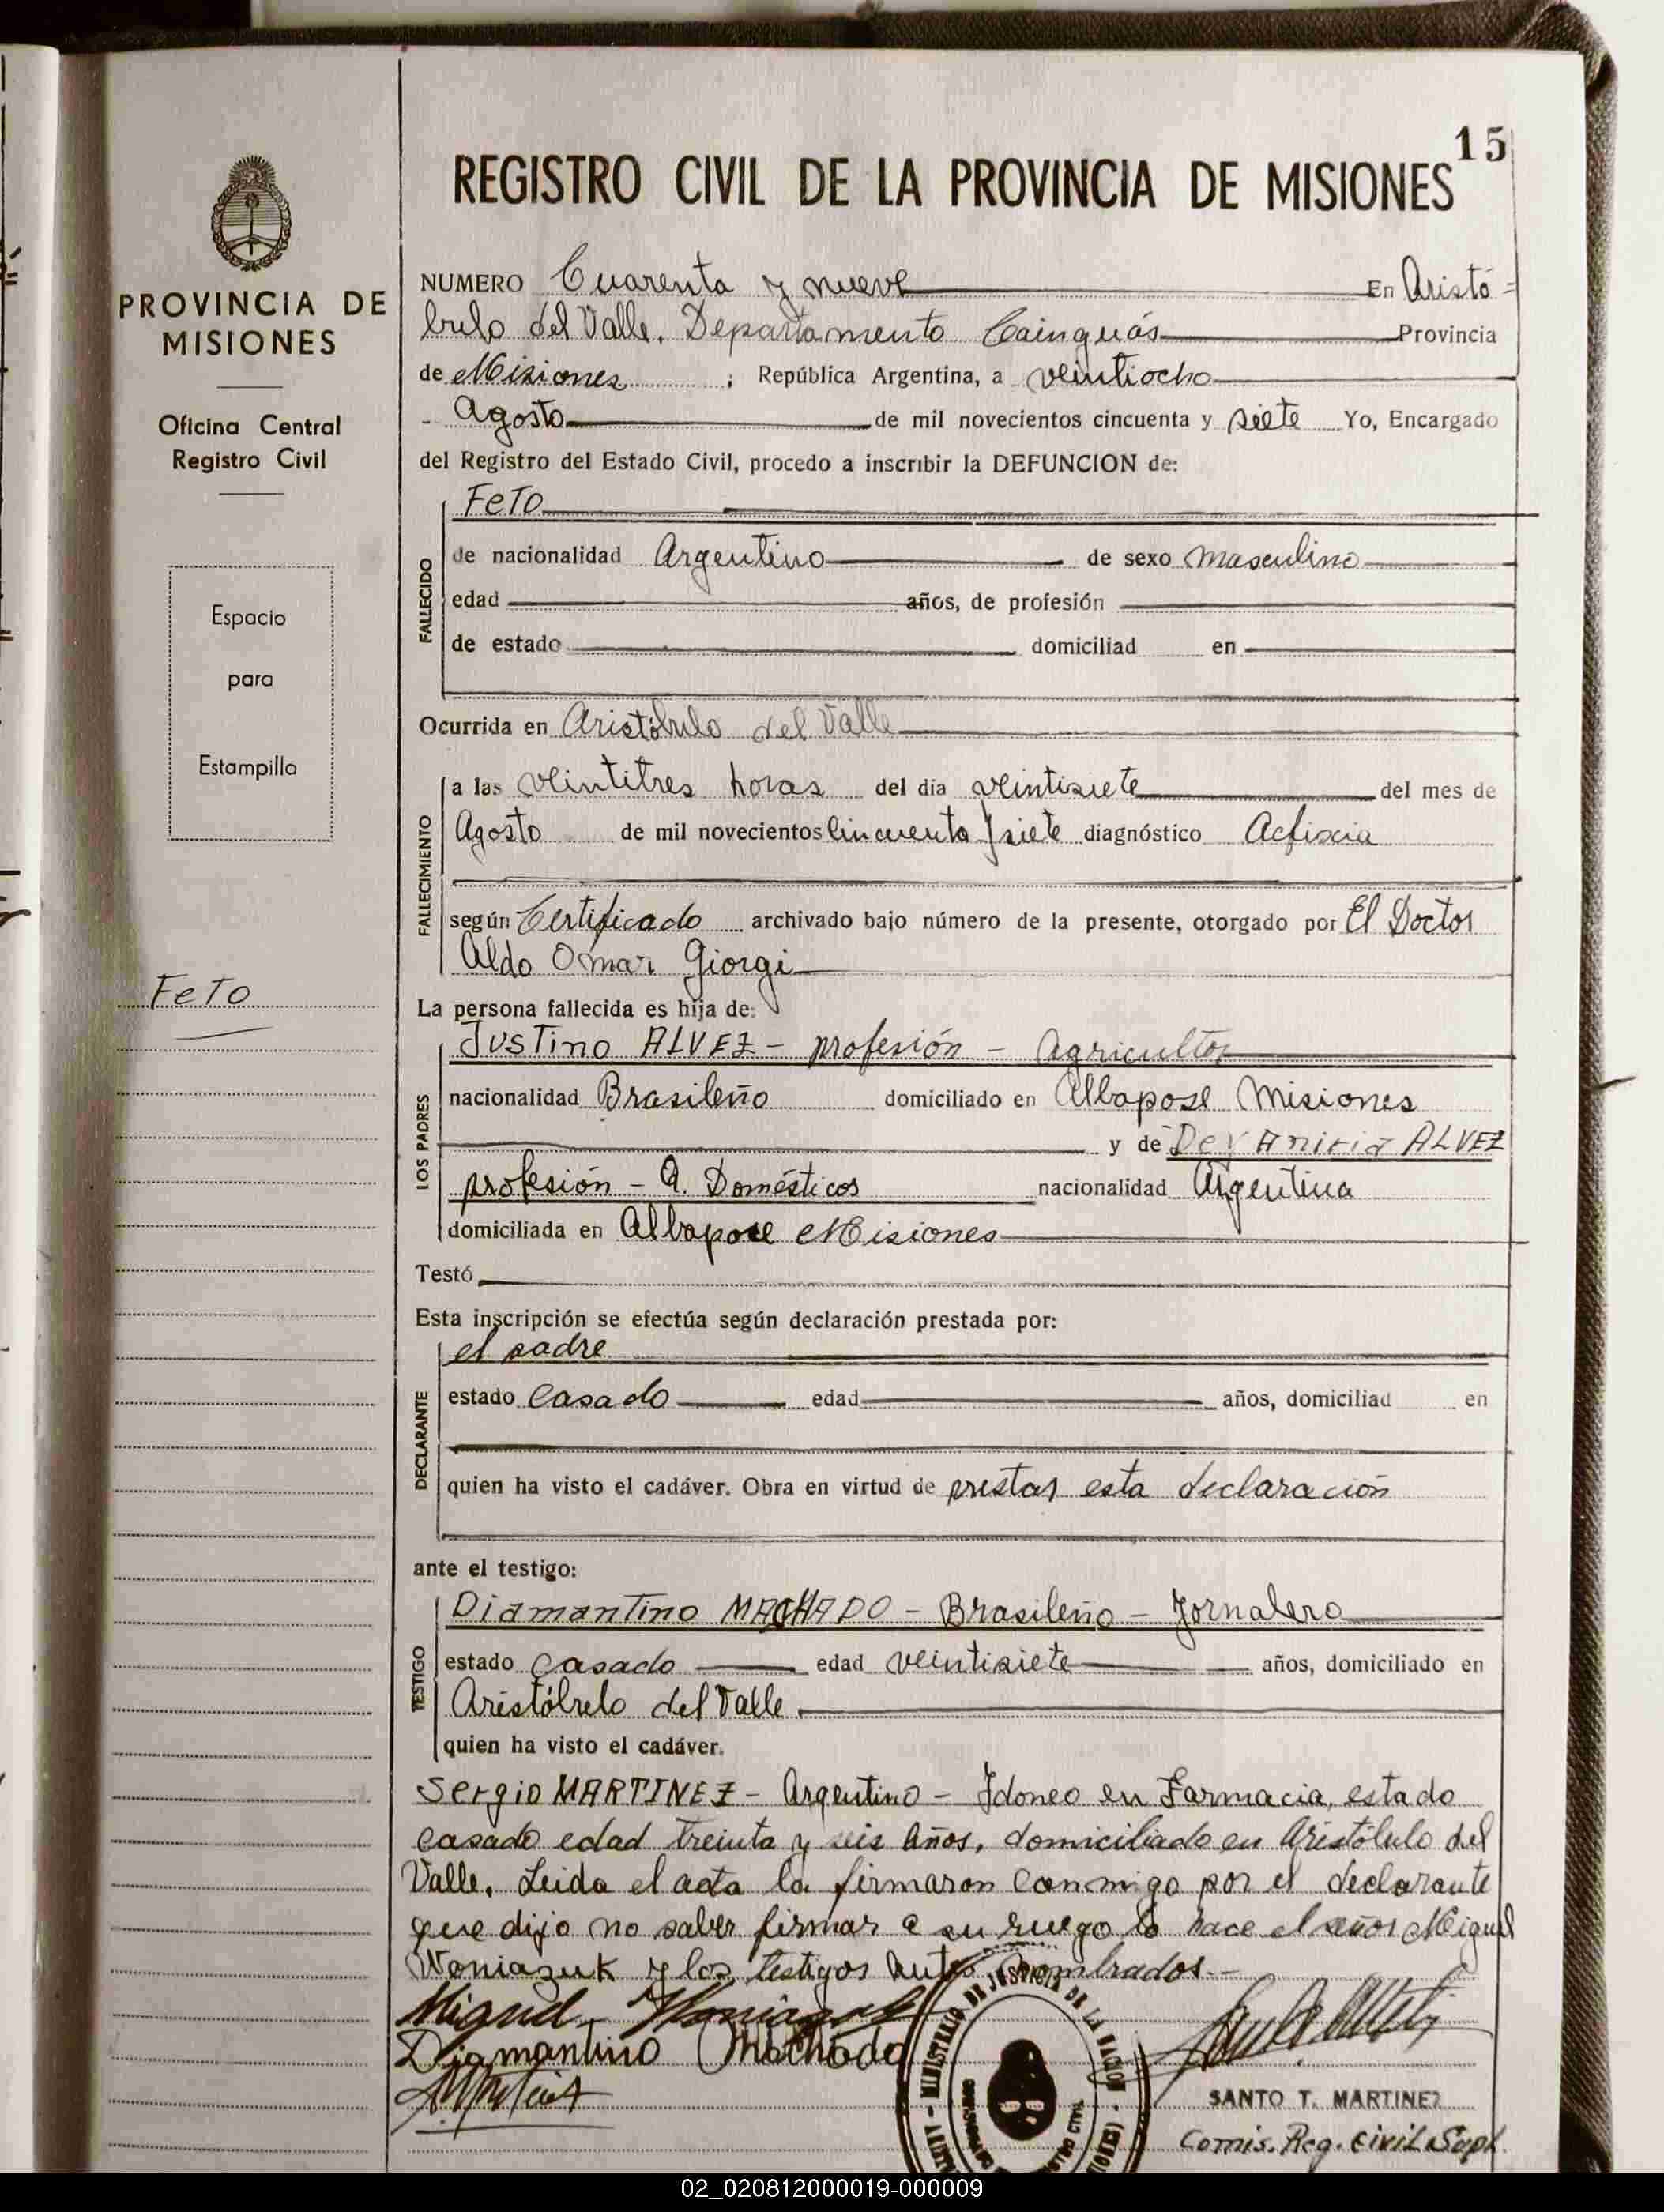 15
REGISTRO CIVIL DE LA PROVINCIA DE MISIONES
PROVINCIA DE
MISIONES
Oficina Central
Registro Civil
Espacio
para
Estampilla
FeTo
NUMERO Cuarenta y nueve En Aristó=
bulo del Valle. Departamento Cainguás Provincia
de Misiones ; República Argentina, a veintiocho
- Agosto de mil novecientos cincuenta y siete Yo, Encargado
del Registro del Estado Civil, procedo a inscribir la DEFUNCION de:
FeTo
FALLECIDO
de nacionalidad Argentino de sexo masculino
edad años, de profesión
de estado domiciliad en
Ocurrida en Aristóbulo del Valle
FALLECIMIENTO
a las veintitres horas del día veintisiete del mes de
Agosto de mil novecientos Cincuenta y siete diagnóstico Acfixia
según Certificado archivado bajo número de la presente, otorgado por El Doctor
Aldo Omar Giorgi
La persona fallecida es hija de:
LOS PADRES
Justino ALVEZ - profesión - Agricultor
nacionalidad Brasileño domiciliado en Albapose Misiones
y de ALVEZ
profesión - Q. Domésticos nacionalidad Argentina
domiciliada en Albapose Misiones
Testó
Esta inscripción se efectúa según declaración prestada por:
DECLARANTE
el padre
estado Casado edad años, domiciliad en
quien ha visto el cadáver. Obra en virtud de prestar esta declaración
ante el testigo:
TESTIGO
Diamantino MACHADO - Brasileño - Jornalero
estado Casado edad veintisiete años, domiciliado en
Aristóbulo del Valle.
quien ha visto el cadáver.
Sergio MARTINEZ - Argentino - Idoneo en Farmacia, estado
casado edad treinta y seis años, domiciliado en Aristóbulo del
Valle. Leida el acta la firmaron conmigo por el declarante
que dijo no saber firmar a su ruego lo hace el señor Miguel
Woniazuk y los testigos antes nombrados.-
Miguel Woniazuk
Diamantino Machado
MINISTERIO DE JUSTICIA DE LA NACION
REGISTRO CIVIL
SANTO T. MARTINEZ
Comis. Reg. Civil Supl.
02_020812000019-000009